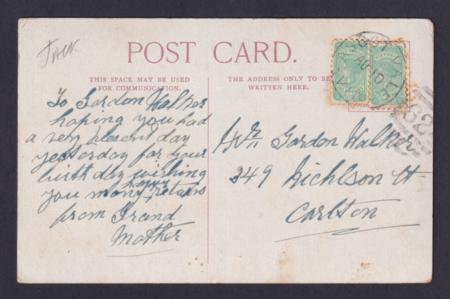 JACK
POST CARD.
THIS SPACE MAY BE USED
FOR COMMUNICATION.
THE ADDRESS ONLY TO BE
WRITTEN HERE.
To Gordon Walker
hoping you had
a very pleasent day
yesterday for your
birthday wishing
you many happy retuns
from Grand
Mother
Gordon Walker
349 Nichlson St
Carlton